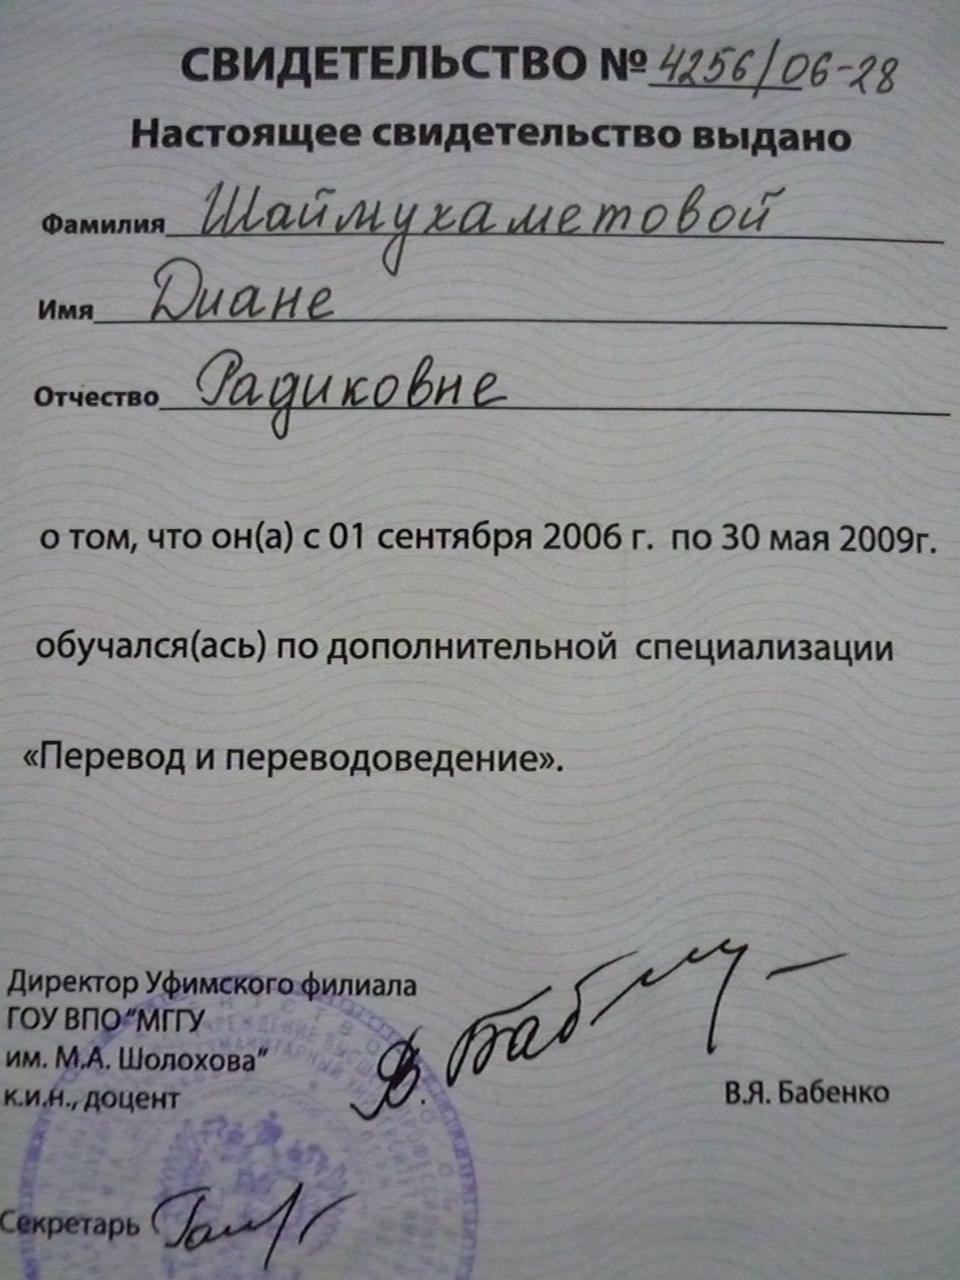 СВИДЕТЕЛЬСТВО № 4256/06-28
Настоящее свидетельство выдано
Фамилия Шаймухаметовой
Имя Диане
Отчество Радиковне
о том, что он(а) с 01 сентября 2006 г. по 30 мая 2009г.
обучался(ась) по дополнительной специализации
«Перевод и переводоведение».
Директор Уфимского филиала
ГОУ ВПО "МГГУ
им. М.А. Шолохова"
к.и.н., доцент
В.Я. Бабенко
Секретарь